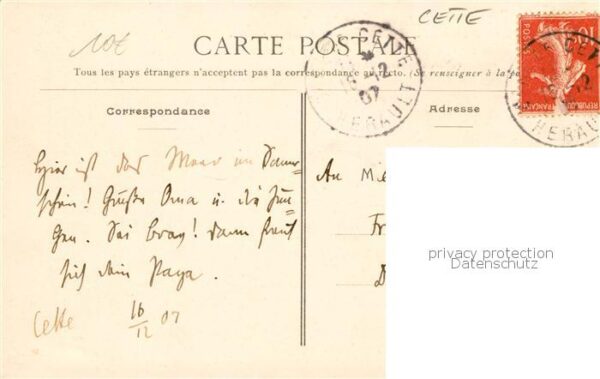 10€
CETTE
CARTE POSTALE
Tous les pays étrangers n'acceptent pas la correspondance au recto. (Se renseigner à la po
Correspondance
Adresse
CETTE
12
07
HERAULT
CETT
12
HERAU
POSTES
REPUBLIQUE FRANÇAISE
Hier ist das Meer im Sonnen-
schein! Grüße Oma u. die Jun-
gen. Sei brav! Dann freut
sich dein Papa.
Cette 16/12 07
An
privacy protection
Datenschutz